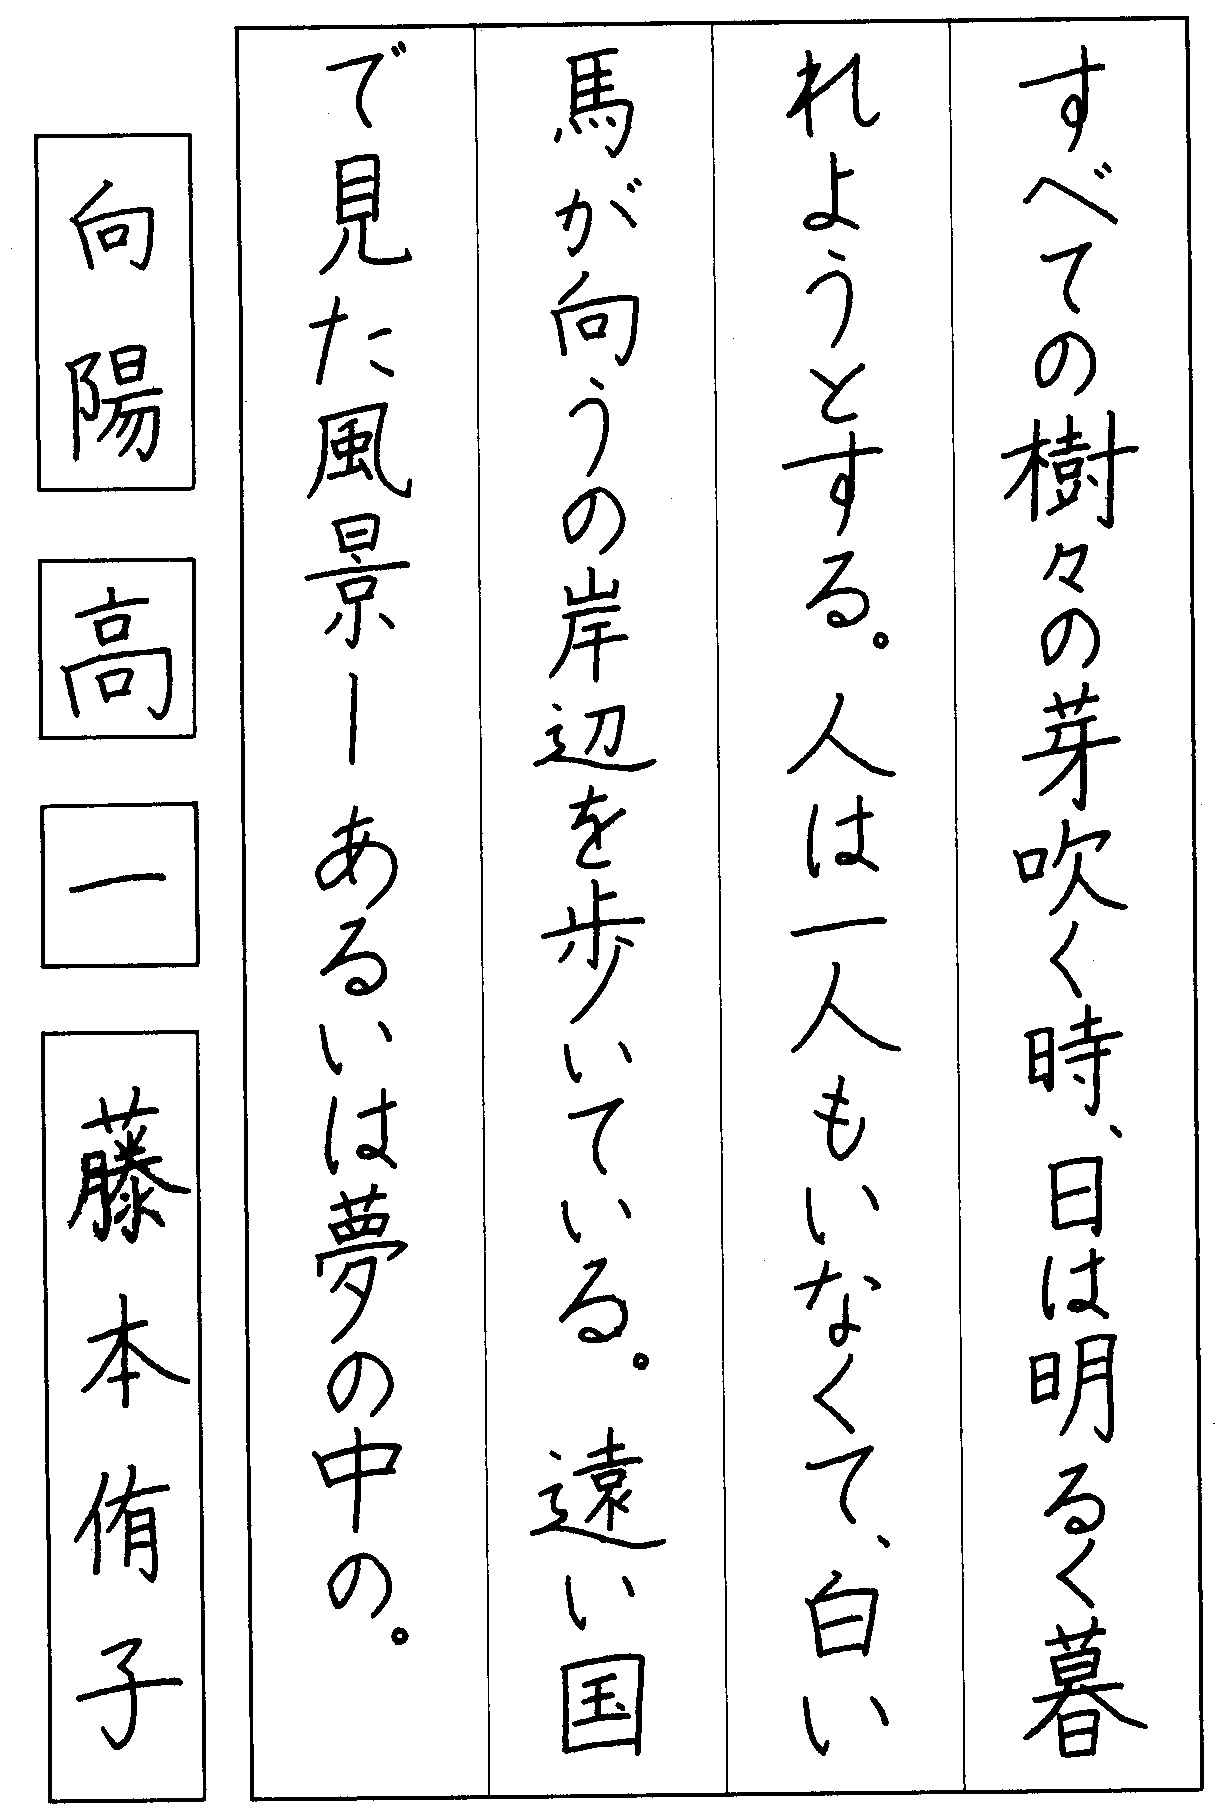 すべての樹々の芽吹く時、日は明るく暮
れようとする。人は一人もいなくて、白い
馬が向うの岸辺を歩いている。遠い国
で見た風景ーあるいは夢の中の。
向陽
高
一
藤本侑子